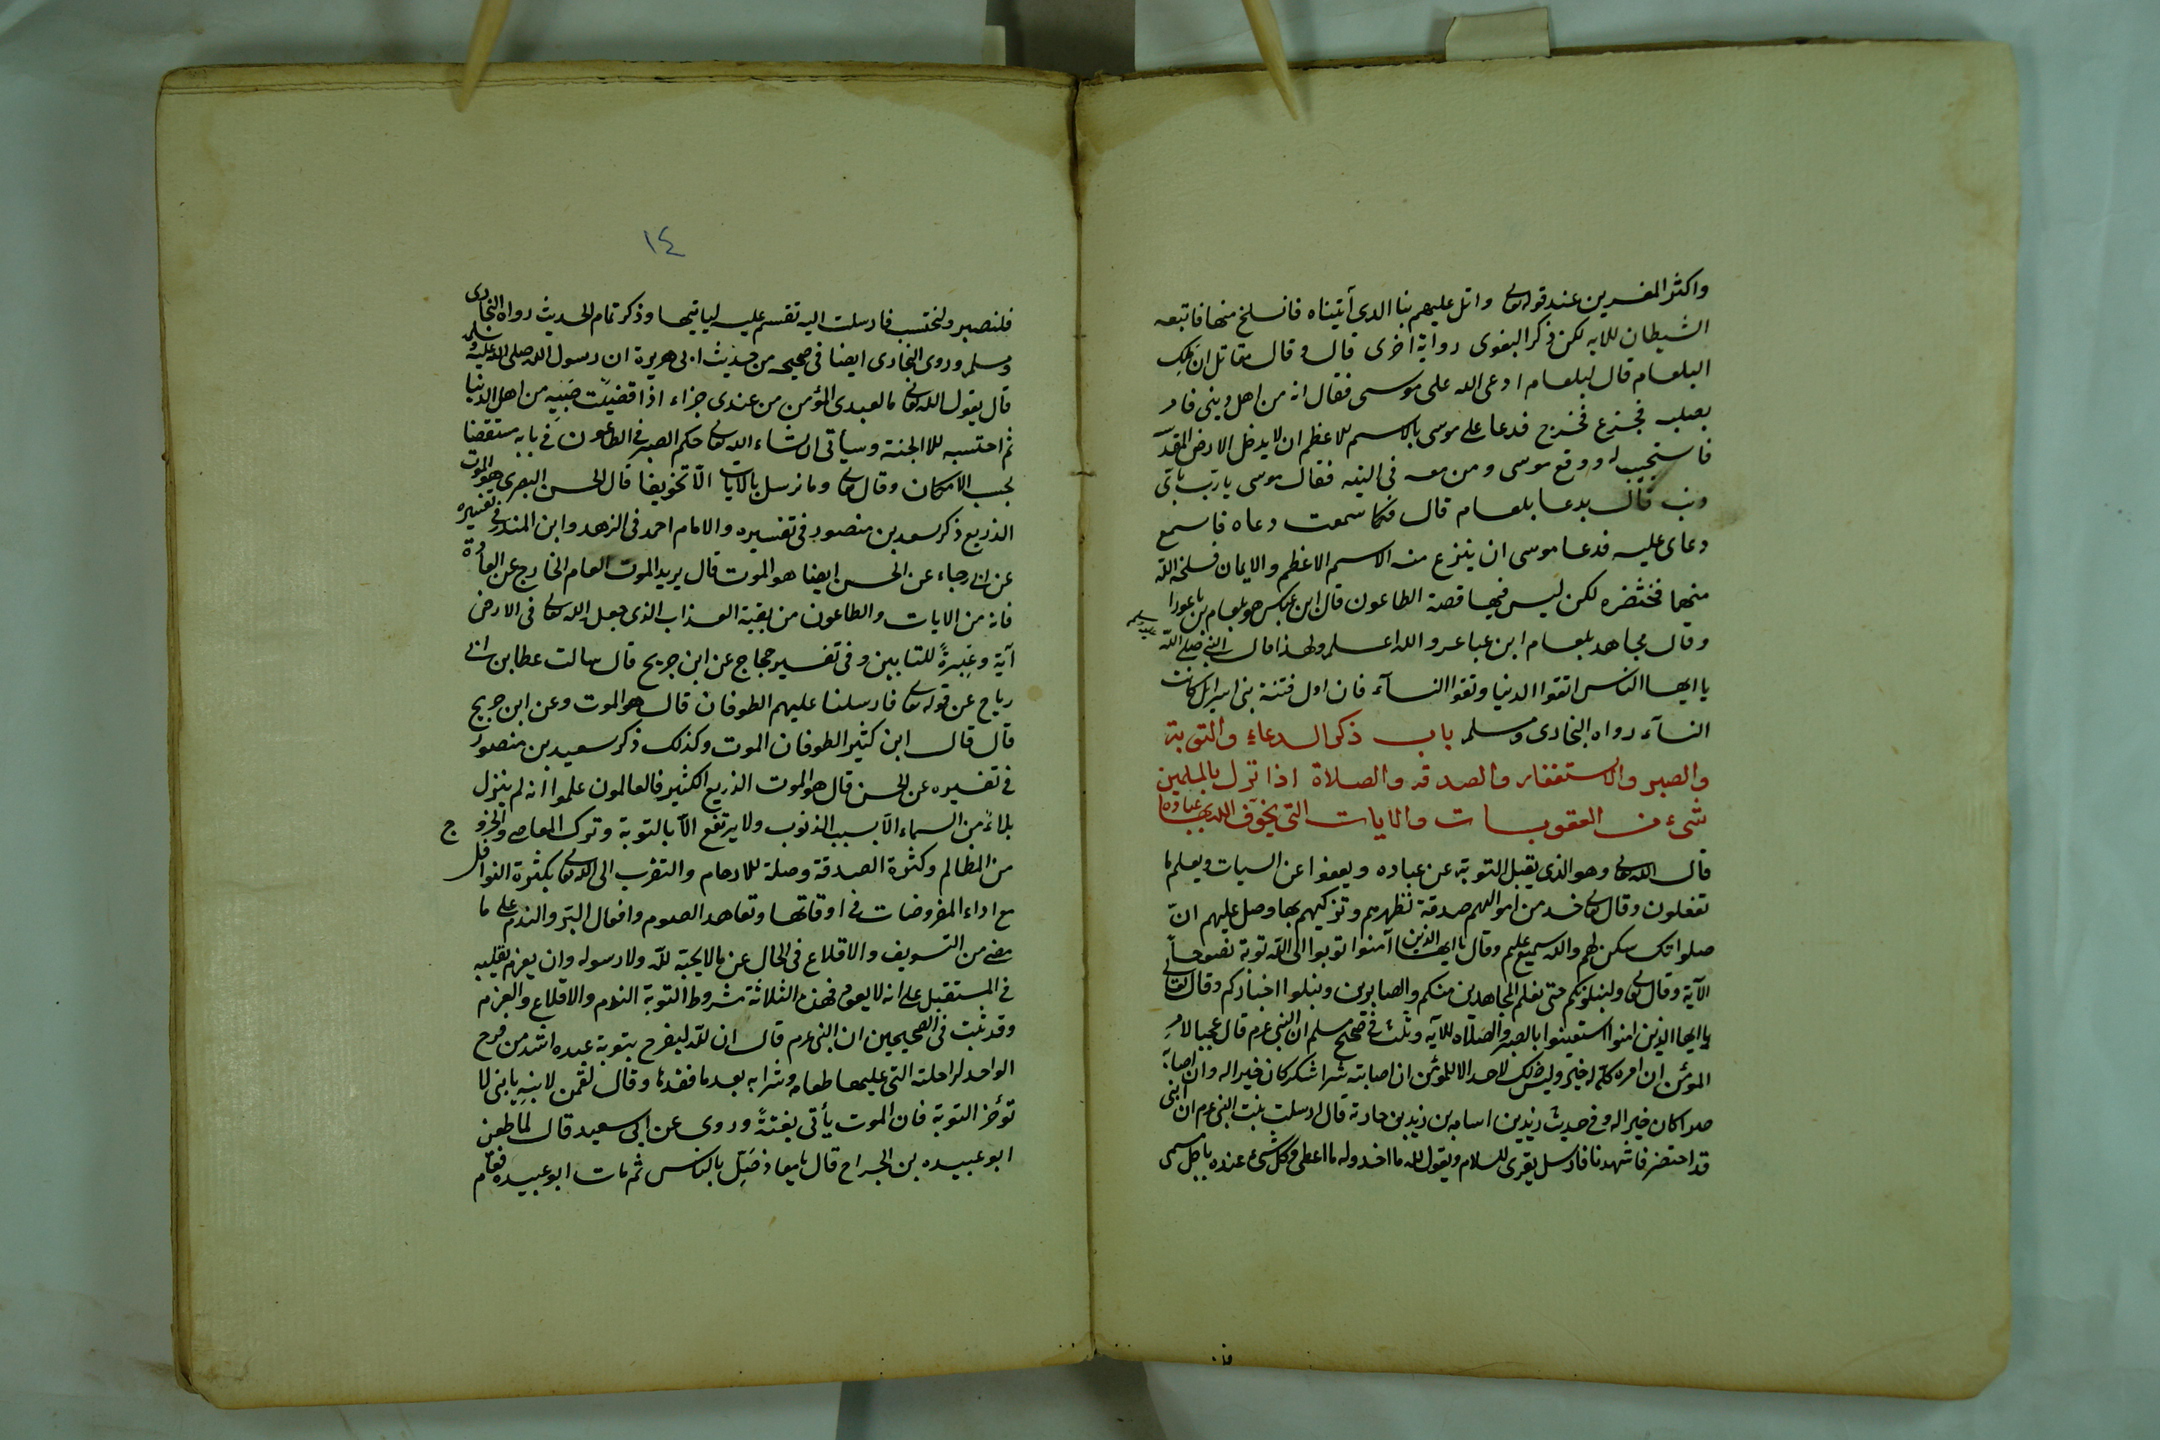 واكثر المفسرين عند قوله تعالى واتل عليهم نبا الذى آتيناه فانسلخ منها فاتبعه
الشيطان للايه لكن ذكر البغوى رواية اخرى قال و قال مقاتل ان ملك
البلعام قال لبلعام ادعى الله على موسى فقال انه من اهل دينى فامر
بصلبه فجزع فخرج فدعا على موسى بالاسم للاعظم ان لا يدخل الارض المقدسة
فاستجيب له ووقع موسى ومن معه فى التيه فقال موسى يا رب باى
ذنب قال بدعا بلعام قال فكما سمعت دعاه فاسمع
دعاى عليه فدعا موسى ان ينزع منه الاسم الاعظم والايمان فسلخه الله
منهما فختضره لكن ليس فيها قصة الطاعون قال ابن عباس هو بلعام بن باعورا
وقال مجاهد بلعام ابن عباعر والله اعلم ولهذا قال النبى صلى الله
عليه وسلم
يا ايها الناس اتقوا الدنيا وتقوا النسآء فان اول فتنة بنى اسرائيل كانت
النسآء رواه البخارى ومسلم باب ذكر الدعاء والتوبة
والصبر والاستغفار والصدقه والصلاة اذا نزل بالمسلمين
شىء من العقوبات والايات التى يخوّف الله بها عباده
قال الله تعالى وهو الذى يقبل التوبة عن عباده ويعفوا عن السيات ويعلم ما
تفعلون وقال تعالى خذ من اموالهم صدقة تطهرهم وتزكيهم بها وصل عليهم انّ
صلواتك سكن لهم والله سميع عليم وقال يا ايها الذين آمنوا توبوا الى الله توبة نصوحاً
الآية وقال تعالى ولنبلونكم حتى نعلم المجاهدين منكم والصابرين ونبلوا اخباركم وقال تعالى
يا ايها الذين امنوا استعينوا بالصبر والصلاه للآيه وثبت فى صحيح مسلم ان النبى عرم قال عجبا لامر
المؤمن ان امره كله له خير وليس ذلك لاحد الا للمؤمن ان اصابته شرا شكر كان خيرا له وان اصابه
صبرا كان خيرا له وفى حديث زيد بن اسامه بن زيد بن حارثة قال ارسلت بنت النبى عرم ان ابنى
قد احتضر فاشهدنا فارسل يقرئ السلام ويقول لله ما اخذ وله ما اعطى وكل شىء عنده باجل مسمى
١٤
فلتصبر ولتحتسب فارسلت اليه تقسم عليه لياتيها وذكر تمام الحديث رواه البخارى
ومسلم وروى البخارى ايضا فى صحيحه من حديث ابى هريرة ان رسول الله صلى الله عليه وسلم
قال يقول الله تعالى ما لعبدى المؤمن من عندى جزاء اذا قضيت صَبيه من اهل الدنيا
ثم احتسبه للا الجنة وسيأتى ان شاء الله تعالى حكم الصبر فى الطاعون فى بابه مستقصا
بحسب الامكان وقال تعالى وما نرسل بالايات الّا تخويفا قال الحسن البصرى هو الموت
الذريع ذكر سعد بن منصور فى تفسيره والامام احمد فى الزهد وابن المنذر فى تفسيره
عن ابى رجاء عن الحسن ايضا هو الموت قال يريد الموت العام الخارج عن العادة
فانه من الايات والطاعون من بقية العذاب الذى جعل الله تعالى فى الارض
آية وعِبرةً للتايبين وفى تفسير حجاج عن ابن جريج قال سالت عطا بن ابى
رباح عن قوله تعالى فارسلنا عليهم الطوفان قال هو الموت وعن ابن جريج
قال قال ابن كثير الطوفان الموت وكذلك ذكر سعيد بن منصور
فى تفسيره عن الحسن قال هو الموت الذريع الكثير فالعالمون علموا انه لم ينزل
بلاءً من السماء الا بسبب الذنوب ولا يرتفع الّا بالتوبة وترك المعاصى والخرو ج
من المظالم وكثرة الصدقة وصلة للارحام والتقرب الى الله تعالى بكثرة النوافل
مع اداء المفروضات فى اوقاتها وتعاهد الصوم وافعال البرّ والندم على ما
مضى من التسويف والاقلاع فى الحال عن ما لا يحبّه للّه ولا رسوله وان يعزم بقلبه
فى المستقبل على انه لا يعود فهذه الثلاثة شروط التوبة الندم والاقلاع والعزم
وقد ثبت فى الصحيحين ان النبى عرم قال ان للّه ليفرح بتوبة عبده اشد من فرح
الواحد لراحلته التى عليها طعامه وشرابه بعد ما فقدها وقال لقمن لابنه يا بنى لا
تؤخر التوبة فان الموت يأتى بغتةً وروى عن ابى سعيد قال لما طعن
ابو عبيده بن الجراح قال يا معاذ صَلّ بالناس ثم مات ابو عبيده فقام